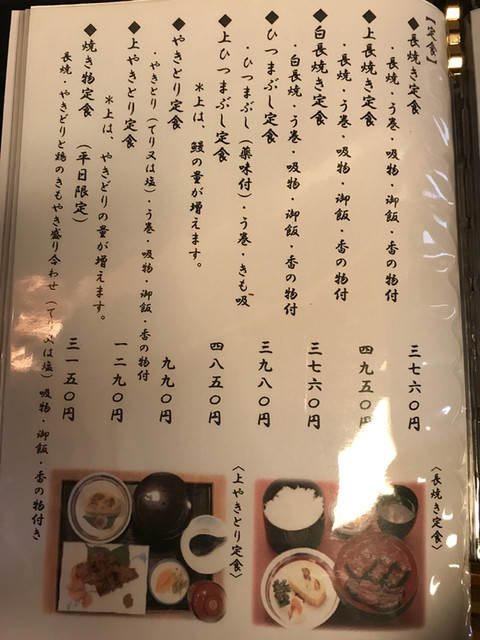 【定食】
◆長焼き定食 三七六〇円
・長焼・う巻・吸物・御飯・香の物付
◆上長焼き定食 四九五〇円
・長焼・う巻・吸物・御飯・香の物付
◆白長焼き定食 三七六〇円
・白長焼・う巻・吸物・御飯・香の物付
◆ひつまぶし定食 三九八〇円
・ひつまぶし(薬味付)・う巻・きも吸
◆上ひつまぶし定食 四八五〇円
*上は、鰻の量が増えます。
◆やきとり定食 九九〇円
・やきとり(てり又は塩)・う巻・吸物・御飯・香の物付
◆上やきどり定食 一二九〇円
*上は、やきどりの量が増えます。
◆焼き物定食 (平日限定) 三一五〇円
長焼・やきどりと鶏のきもやき盛り合わせ(てり又は塩)吸物・御飯・香の物付き
〈長焼き定食〉
〈上やきどり定食〉